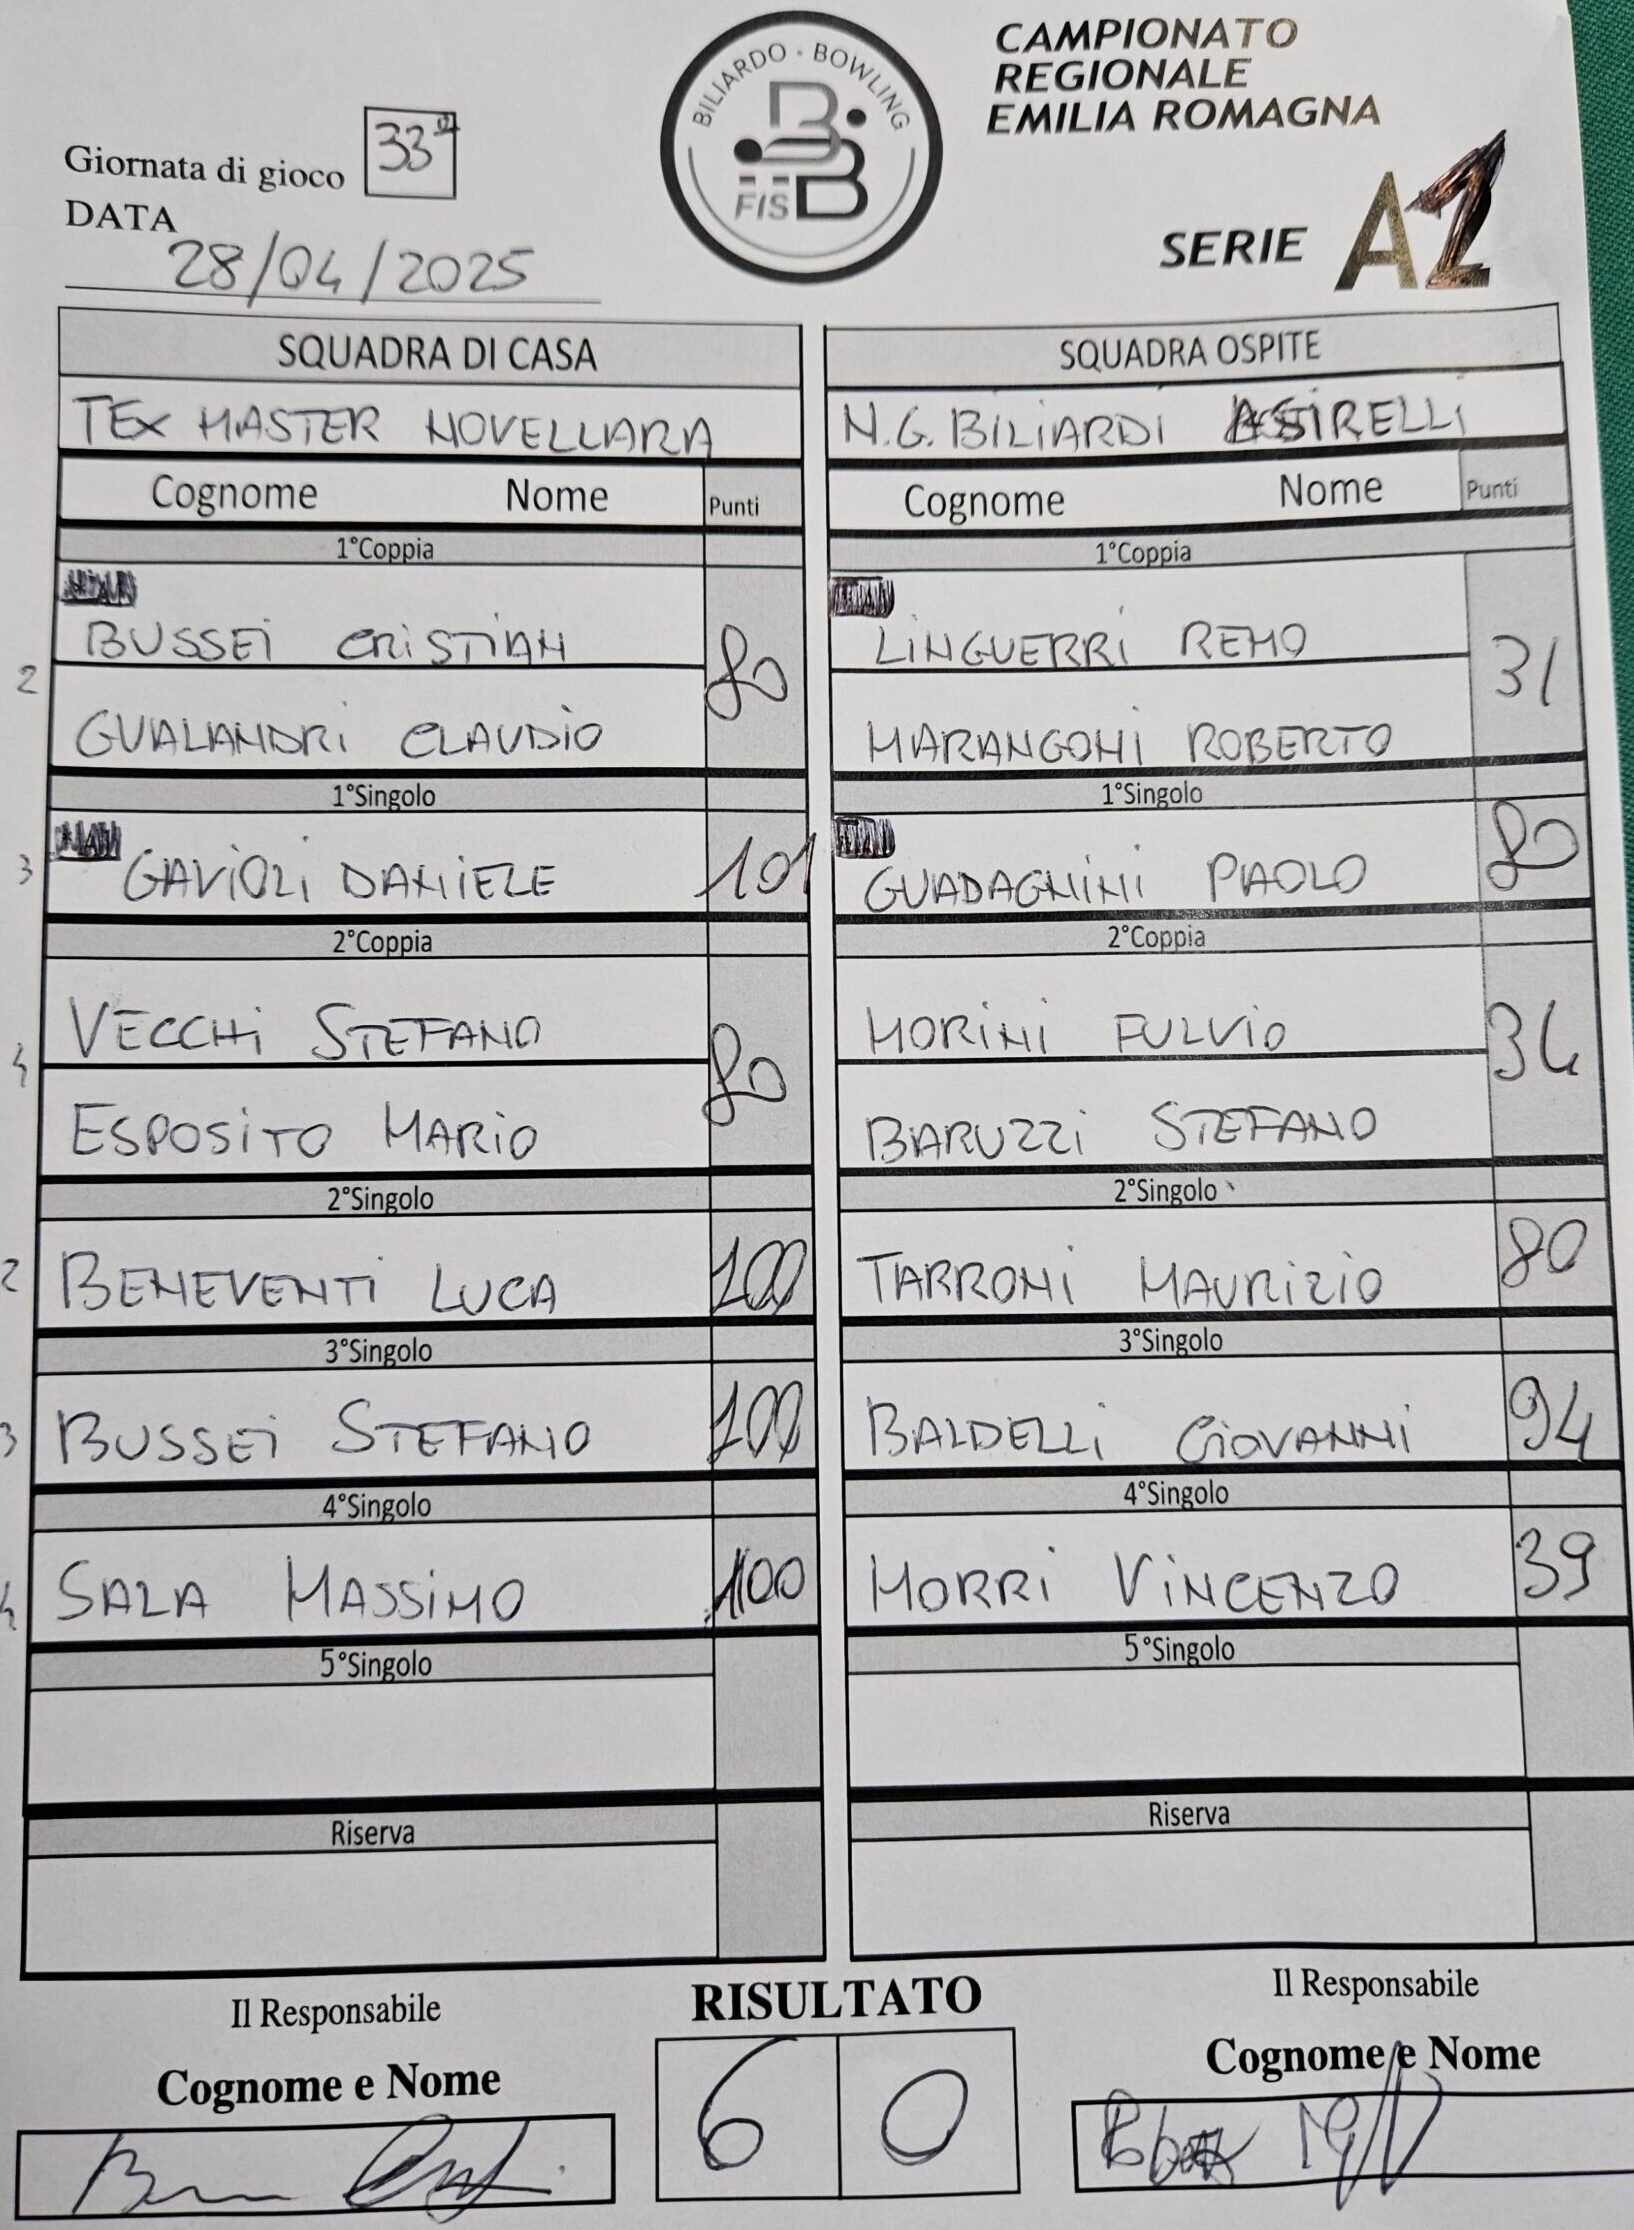 BILIARDO · BOWLING
FISBB
CAMPIONATO
REGIONALE
EMILIA ROMAGNA
SERIE A2
Giornata di gioco 33ª
DATA
28/04/2025
SQUADRA DI CASA
TEX MASTER NOVELLARA
Cognome Nome Punti
1°Coppia
BUSSEI CRISTIAN
2 80
GUALANDRI CLAUDIO
1°Singolo
3 GAVIOLI DANIELE 101
2°Coppia
VECCHI STEFANO
4 80
ESPOSITO MARIO
2°Singolo
2 BENEVENTI LUCA 100
3°Singolo
3 BUSSEI STEFANO 100
4°Singolo
4 SALA MASSIMO 100
5°Singolo
Riserva
SQUADRA OSPITE
N.G. BILIARDI ASIRELLI
Cognome Nome Punti
1°Coppia
LINGUERRI REMO
31
MARANGONI ROBERTO
1°Singolo
GUADAGNINI PAOLO 80
2°Coppia
MORINI FULVIO
34
BARUZZI STEFANO
2°Singolo
TARRONI MAURIZIO 80
3°Singolo
BALDELLI GIOVANNI 94
4°Singolo
MORRI VINCENZO 39
5°Singolo
Riserva
Il Responsabile
Cognome e Nome
RISULTATO
6 0
Il Responsabile
Cognome e Nome